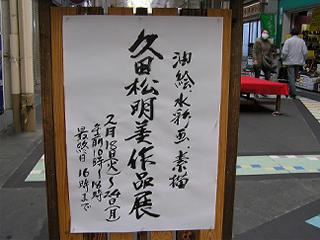 油絵、水彩画、素描
久田松明美作品展
2月18日(火)〜24日(月)
午前10時〜18時
最終日 16時まで